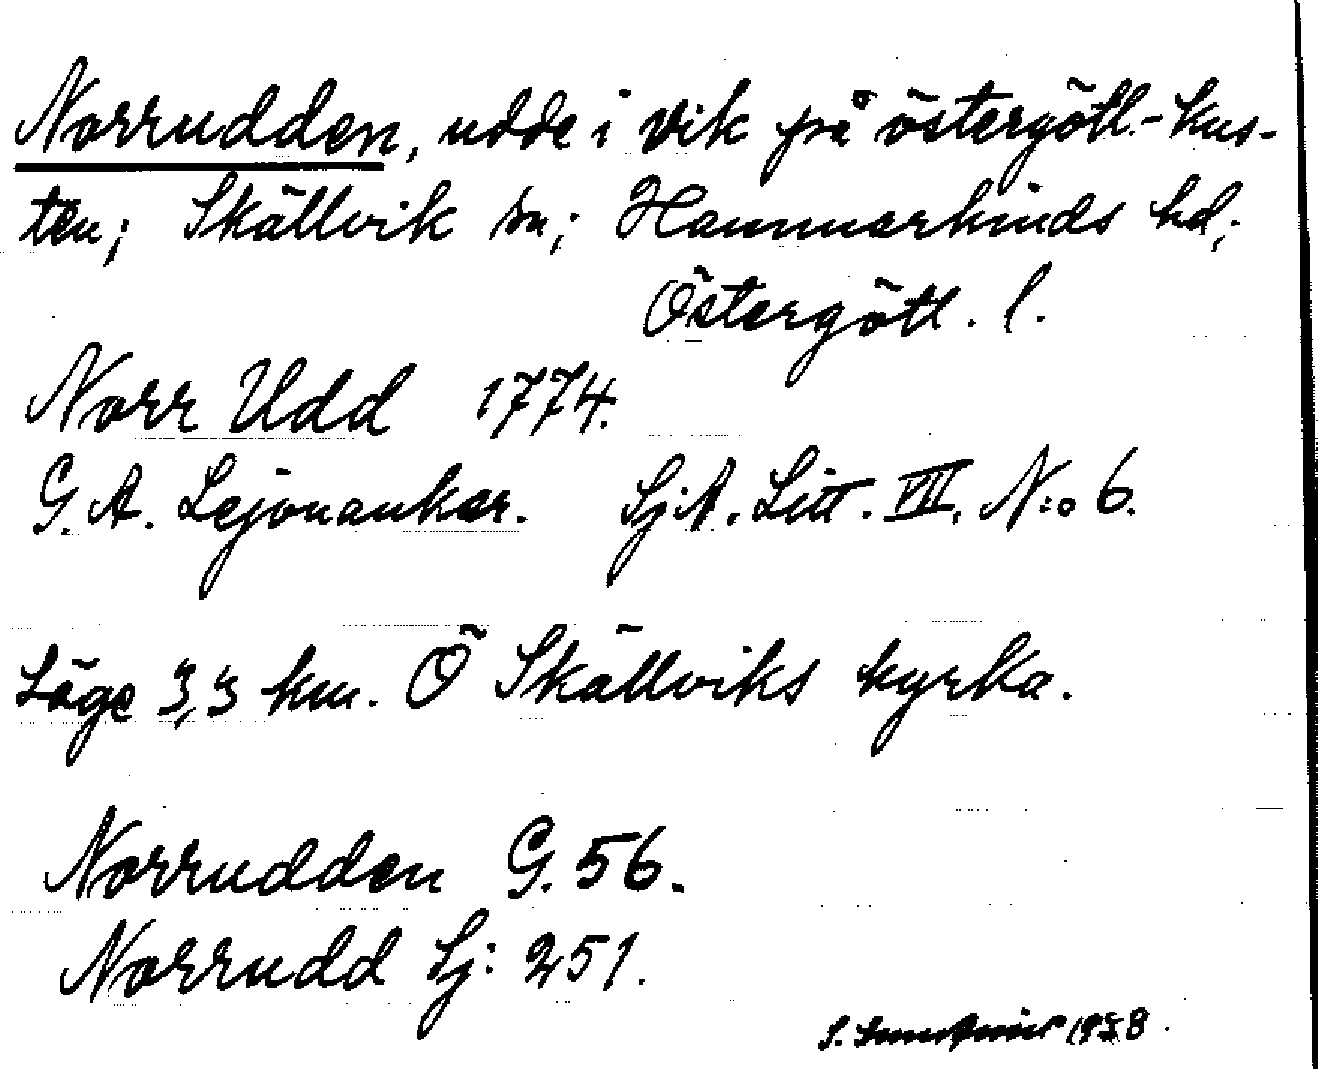 Norrudden, udde i vik på östergötl.-kus-
ten; Skällvik sn; Hammarkinds hd;
Östergötl. l.
Norr Udd 1774.
G. A. Lejonanker. SjA. Litt. VII. N:o 6.
Läge 3,3 km. Ö Skällviks kyrka.
Norrudden G. 56.
Norrudd Sj: 251.
S. 1958.